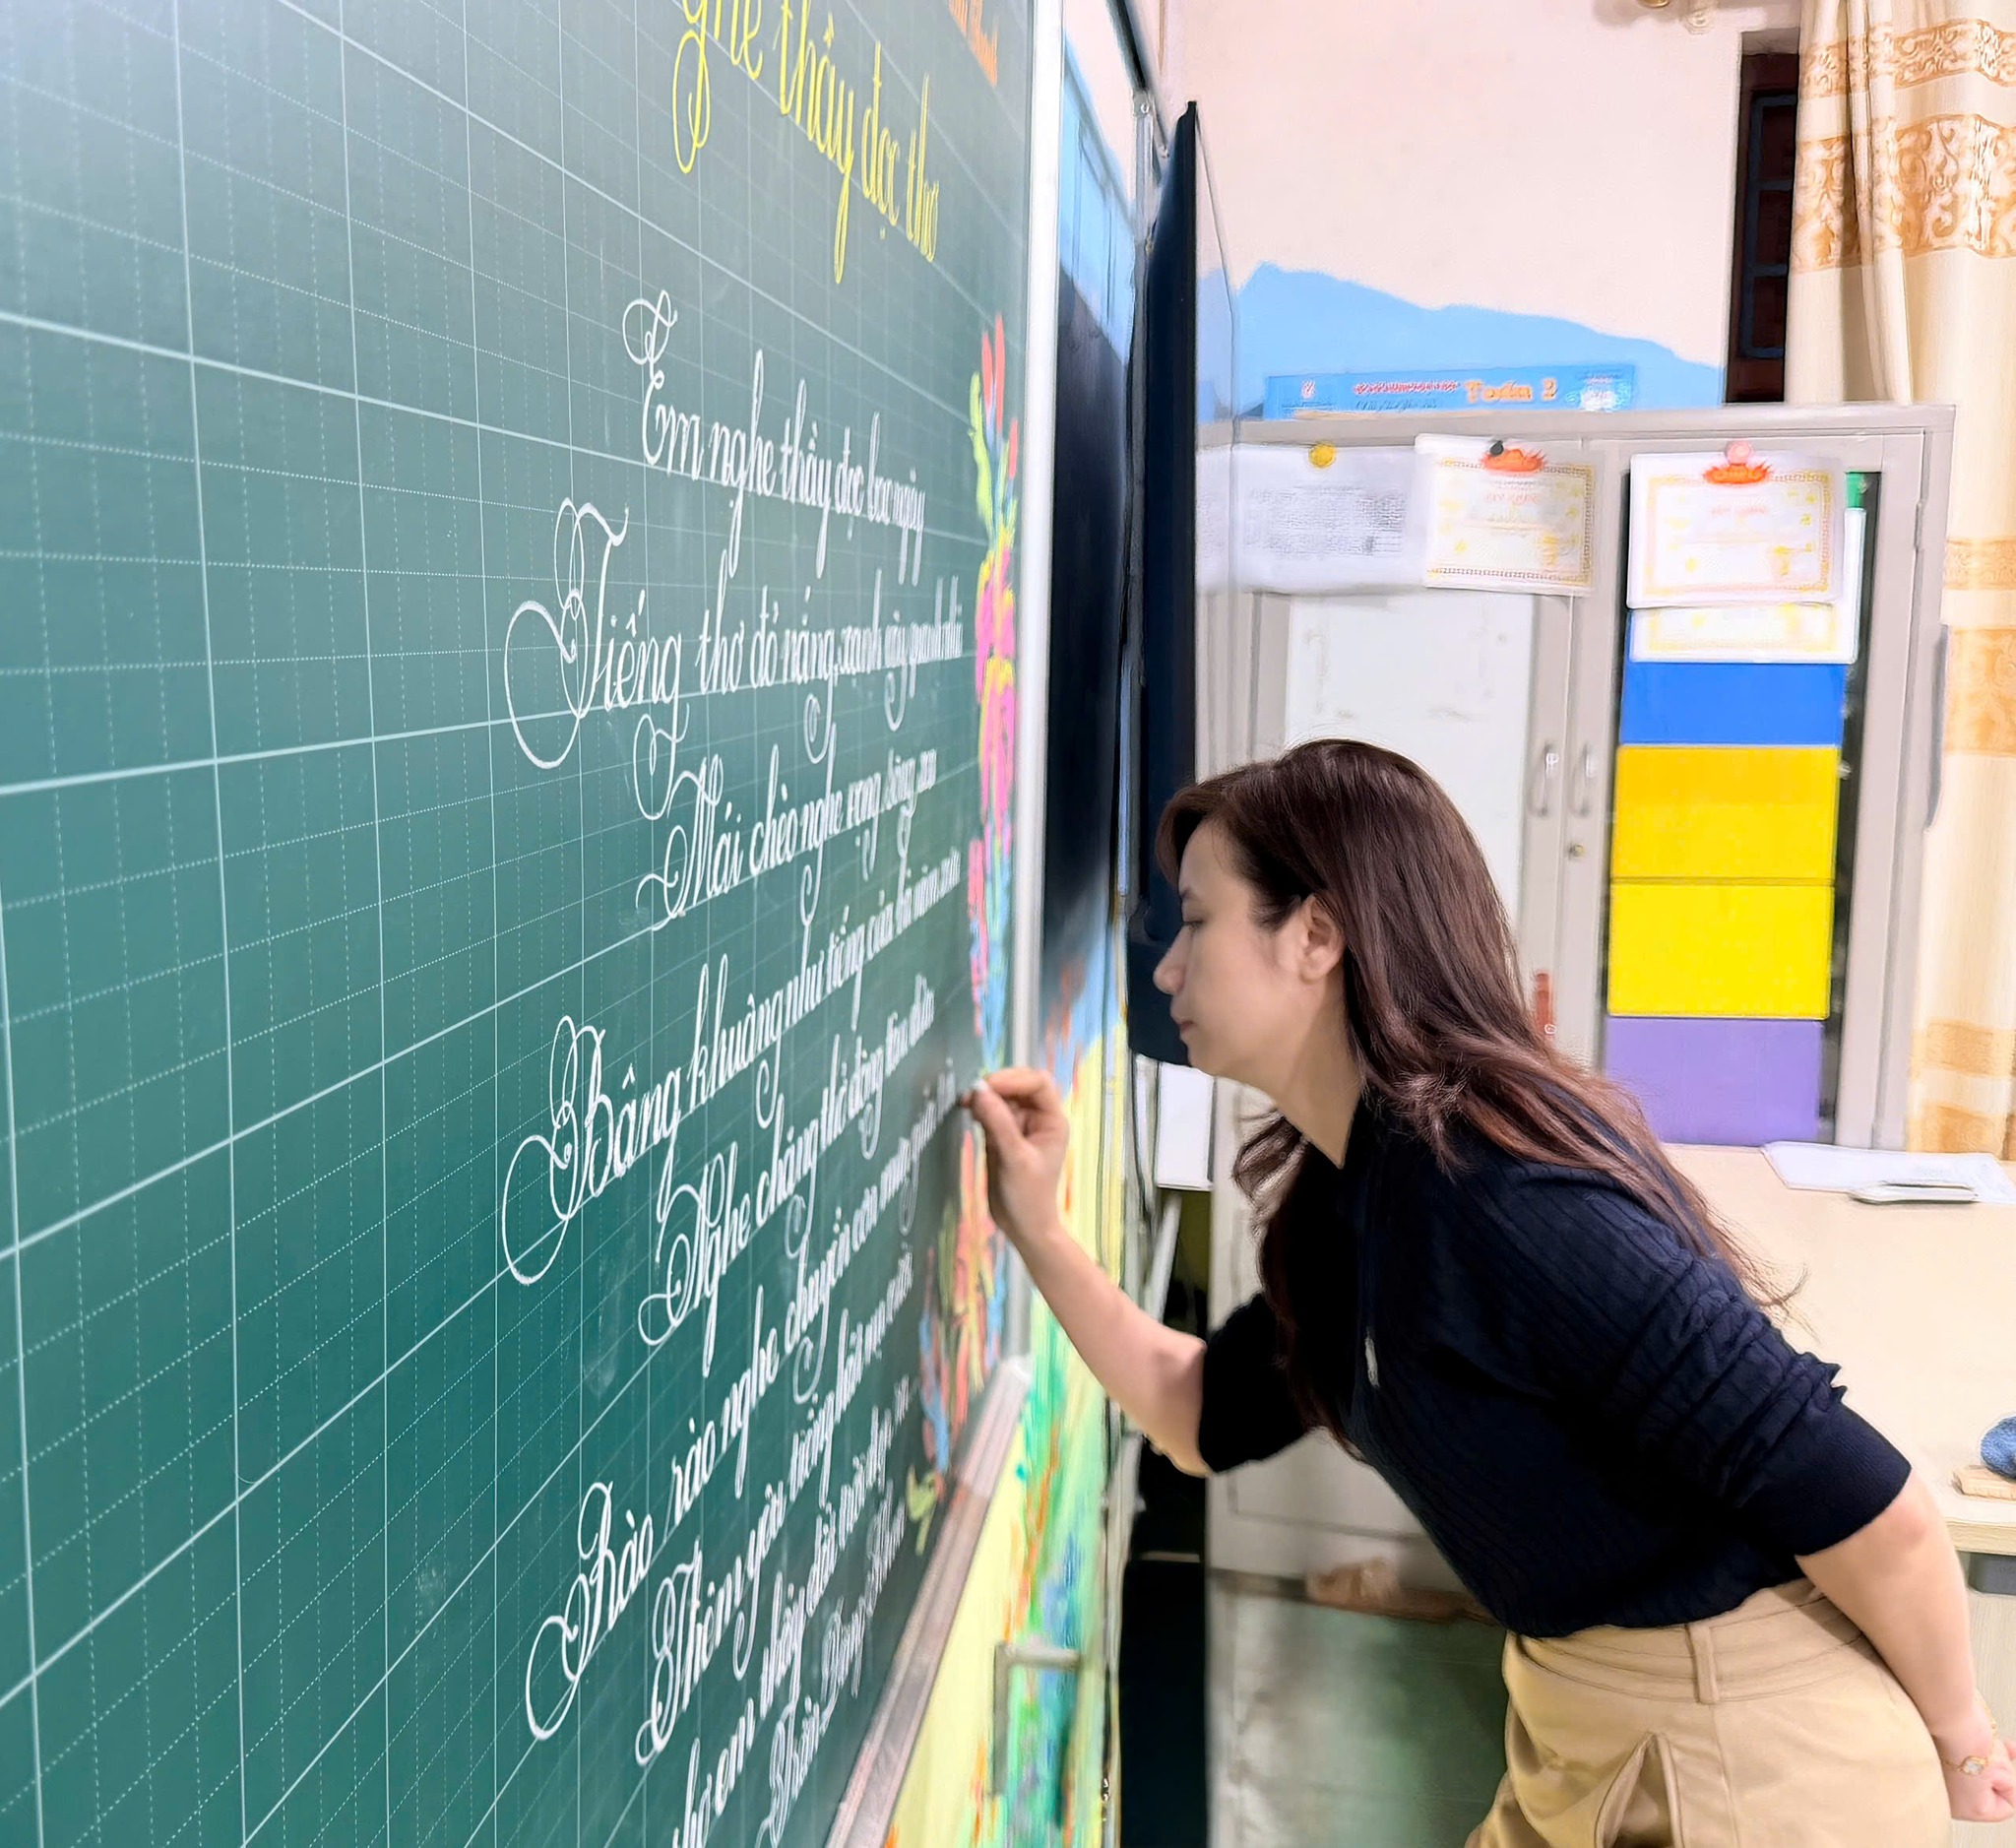 Nghe thầy đọc thơ
Em nghe thầy đọc bao ngày
Tiếng thơ đỏ nắng, xanh cây quanh nhà
Mái chèo nghe vọng sông xa
Bâng khuâng như tiếng của bà năm xưa
Nghe trăng thở động tàu dừa
Rào rào nghe chuyển cơn mưa giữa trời
Thêm yêu tiếng hát nụ cười
Nghe thơ em thấy đất trời đẹp
Trần Đăng Khoa
Tuần 2